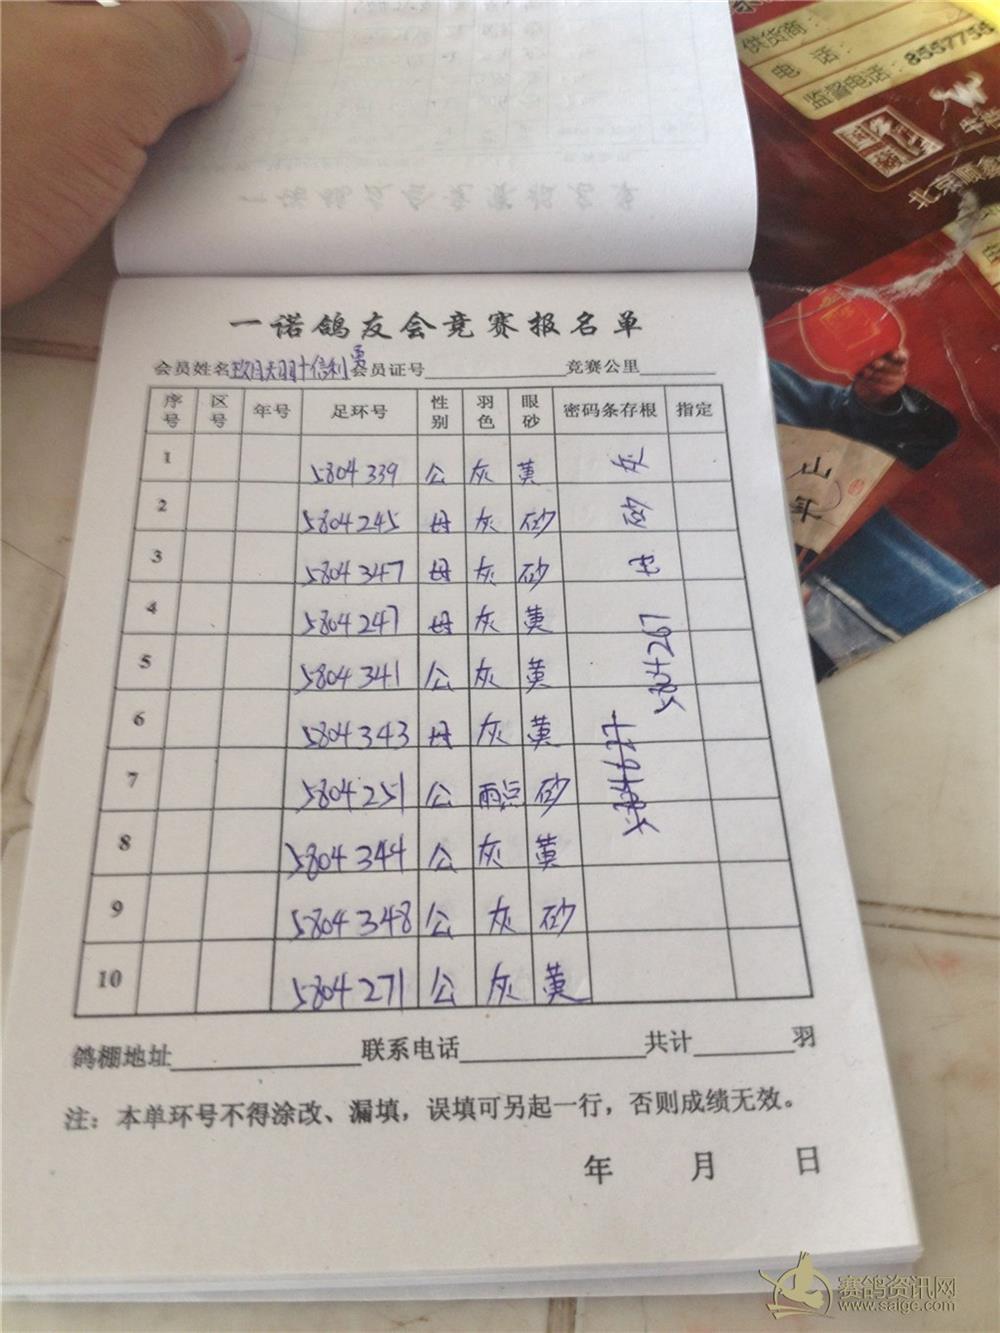 供货商：
电 话：
监督电话：8557755
北京顺鑫
山
年
一诺鸽友会竞赛报名单
会员姓名 玖月天羽十信利勇 会员证号 竞赛公里
序号 区号 年号 足环号 性别 羽色 眼砂 密码条存根 指定
1 5804339 公 灰 黄
2 5804245 母 灰 砂
3 5804347 母 灰 砂
4 5804247 母 灰 黄
5 5804341 公 灰 黄
6 5804343 母 灰 黄
7 5804251 公 雨点 砂
8 5804344 公 灰 黄
9 5804348 公 灰 砂
10 5804271 公 灰 黄
5804267
鸽棚地址 联系电话 共计 羽
注：本单环号不得涂改、漏填，误填可另起一行，否则成绩无效。
年 月 日
赛鸽资讯网
www.saige.com